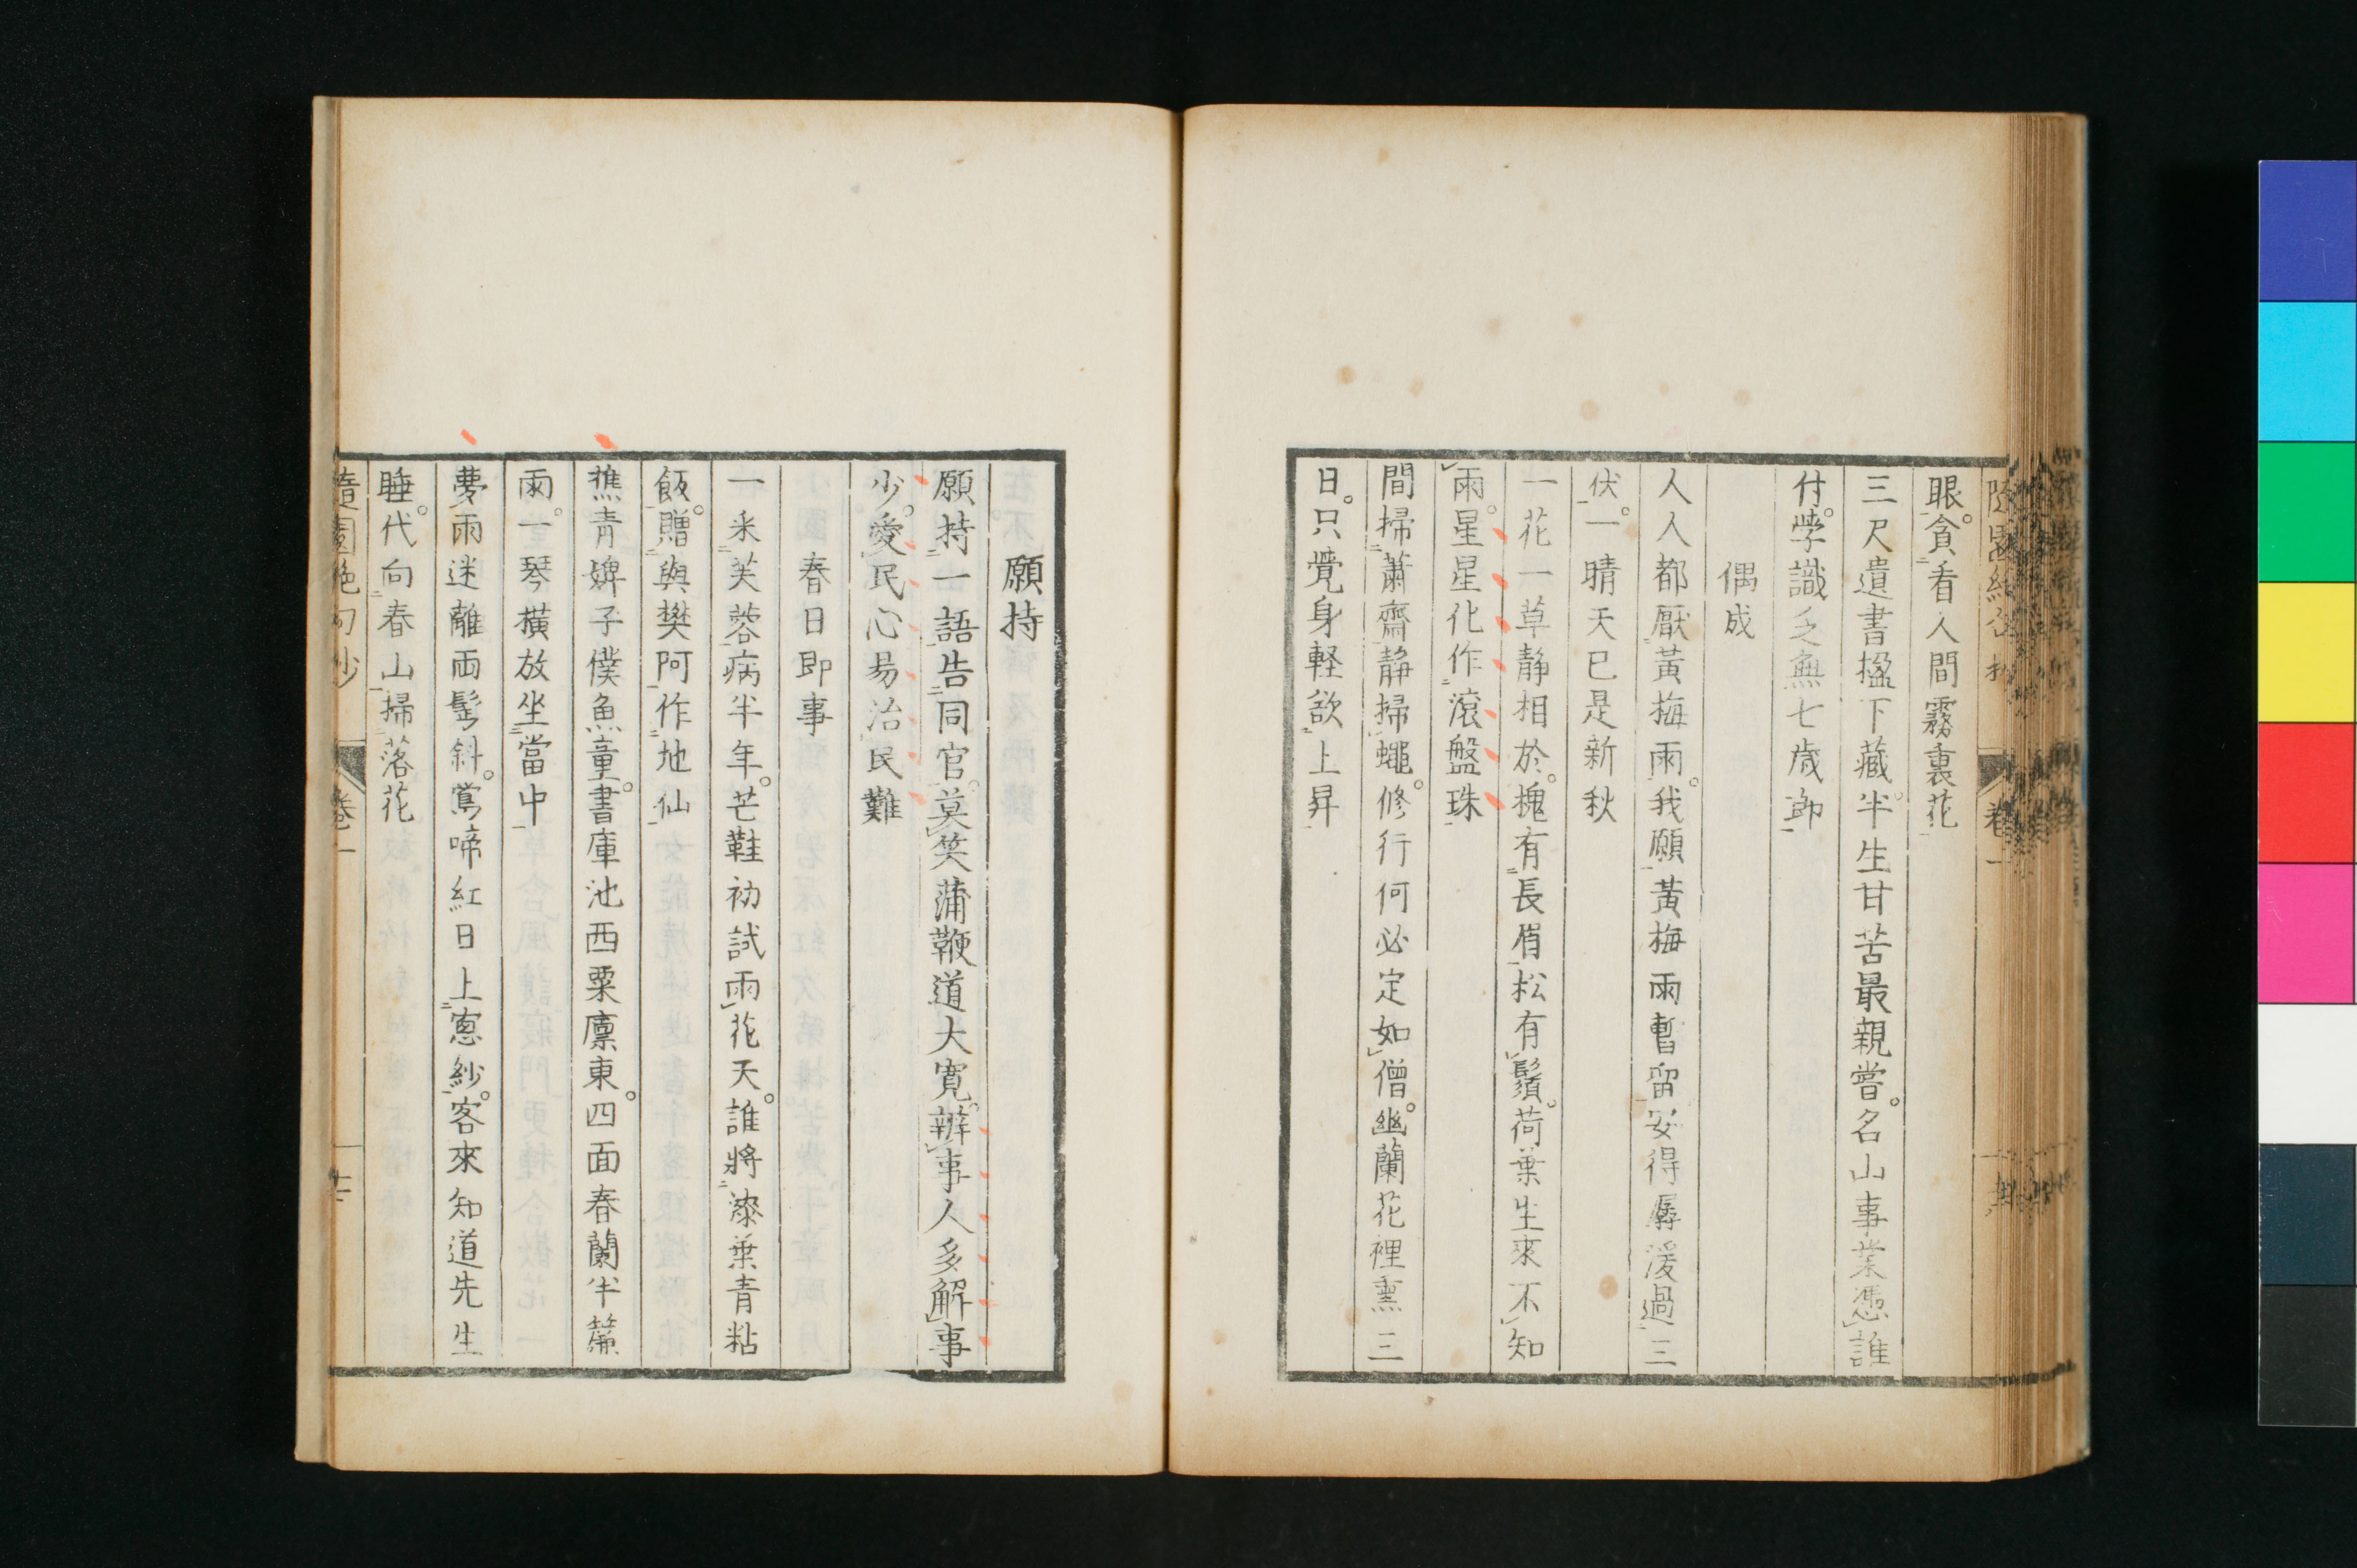 眼。貪看人間霧裏花
三尺遺書楹下藏。半生甘苦最親嘗。名山事業憑誰
付。學識之無七歲郎
偶成
人人都厭黃梅雨。我願黃梅雨暫留。安得孱湲過三
伏。一晴天已是新秋
一花一草静相於。槐有長眉松有鬚。荷葉生來不知
雨。星星化作滾盤珠
間掃蕭齋静掃蠅。修行何必定如僧。幽蘭花裡熏三
日。只覺身軽欲上昇
願持
願持一語告同官。莫笑蒲鞭道大寛。辦事人多解事
少。愛民心易治民難
春日即事
一釆芙蓉病半年。芒鞋初試雨花天。誰將漆葉青粘
飯。贈與樊阿作地仙
樵青婢子僕魚童。書庫池西粟廩東。四面春蘭半簾
雨。一琴橫放坐當中
夢雨迷離兩髩斜。鶯啼紅日上窓紗。客來知道先生
睡。代向春山掃落花
隨園絶句抄 卷一